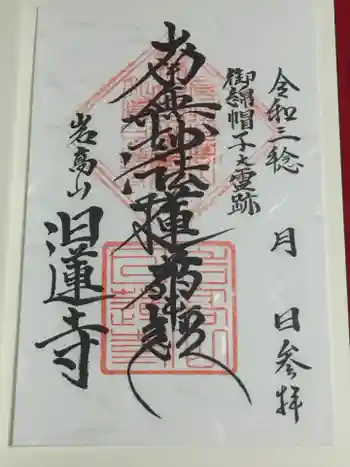 令和三稔 月 日参拝
御綿帽子之霊跡
南無妙法蓮華経
岩高山
旧蓮寺